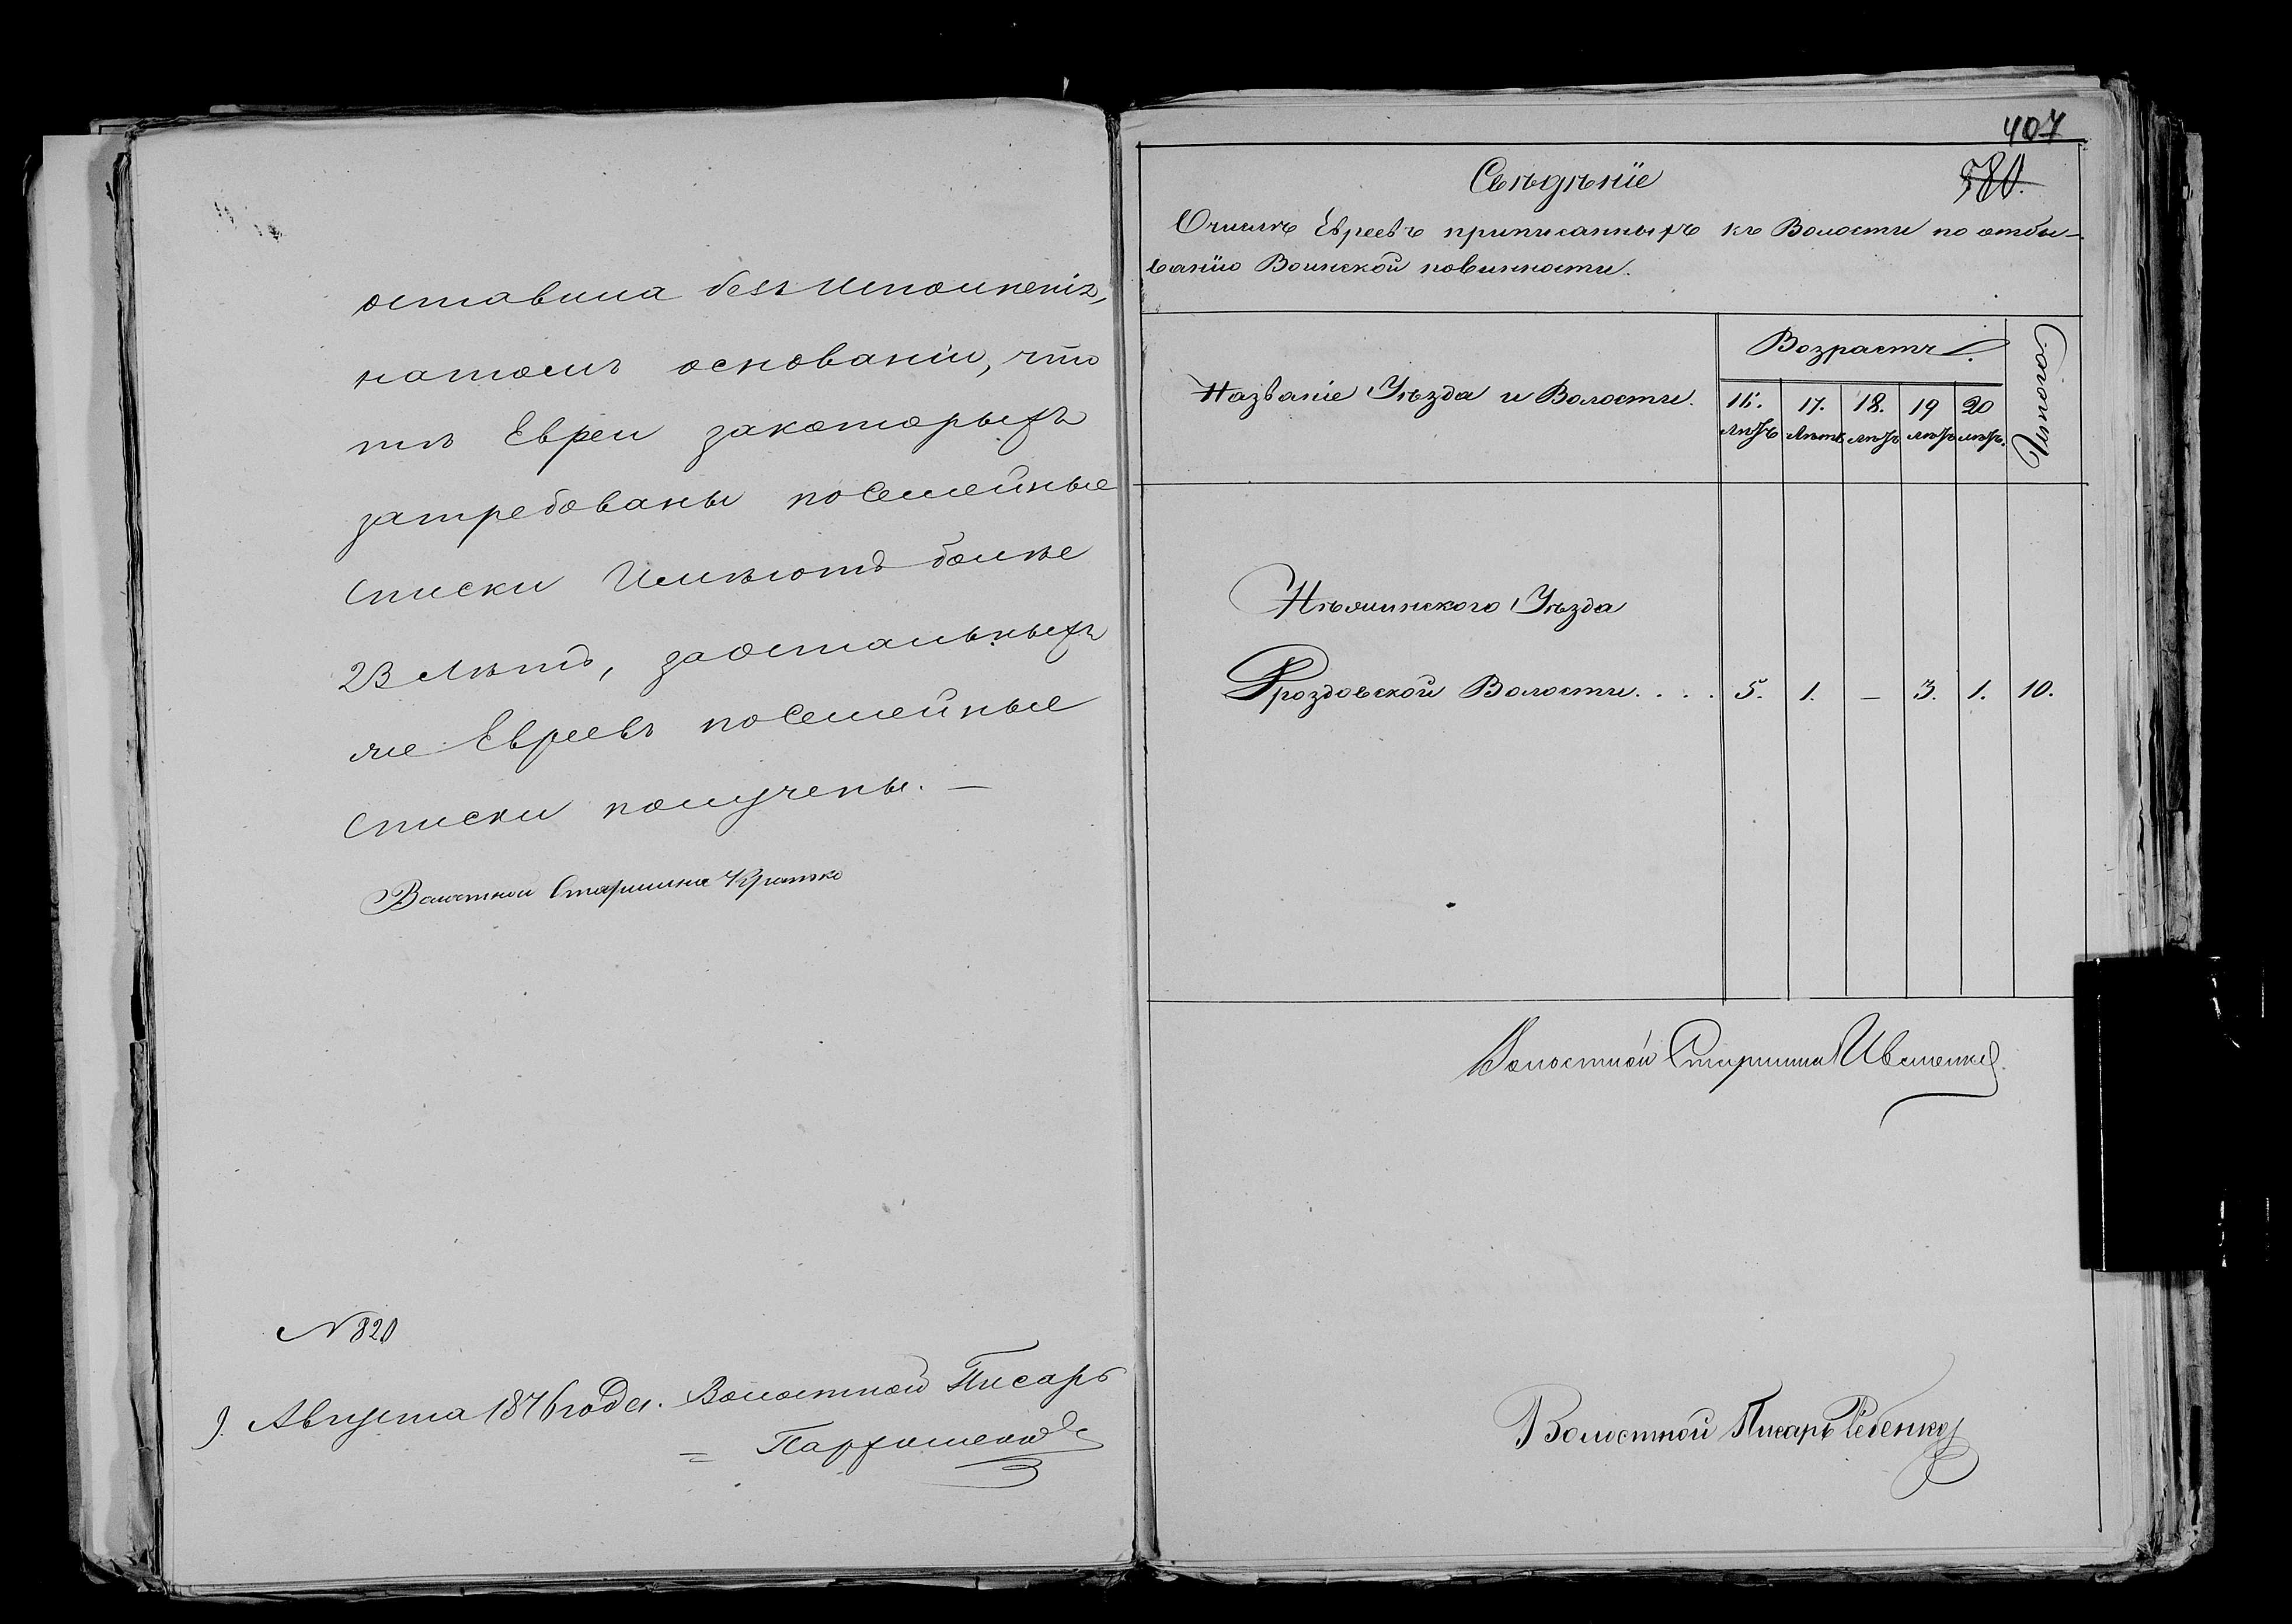 оставила безъ исполненія,
натомъ основаніи, что
тѣ Евреи закоторыхъ
затребованы посемейные
списки имѣютъ болѣе
23 лѣтъ, заостальныхъ
же Евреевъ посемейные
списки получены. —
Волостной Старшина
N 820
9. Августа 1876 года. Волостной Писарь
= Парфименко
407
580.
Свѣдѣніе
Очислѣ Евреевъ приписанныхъ къ Волости по отбы-
ванію Воинской повинности.
Названіе Уѣзда и Волости.
Возрастъ.
Итого.
16. 17. 18. 19 20
лѣтъ лѣтъ лѣтъ лѣтъ лѣтъ.
Нѣжинскаго Уѣзда
Дроздовской Волости. . . . 5. 1. — 3. 1. 10.
Волостной Старшина Иваненко.
Волостной Писарь